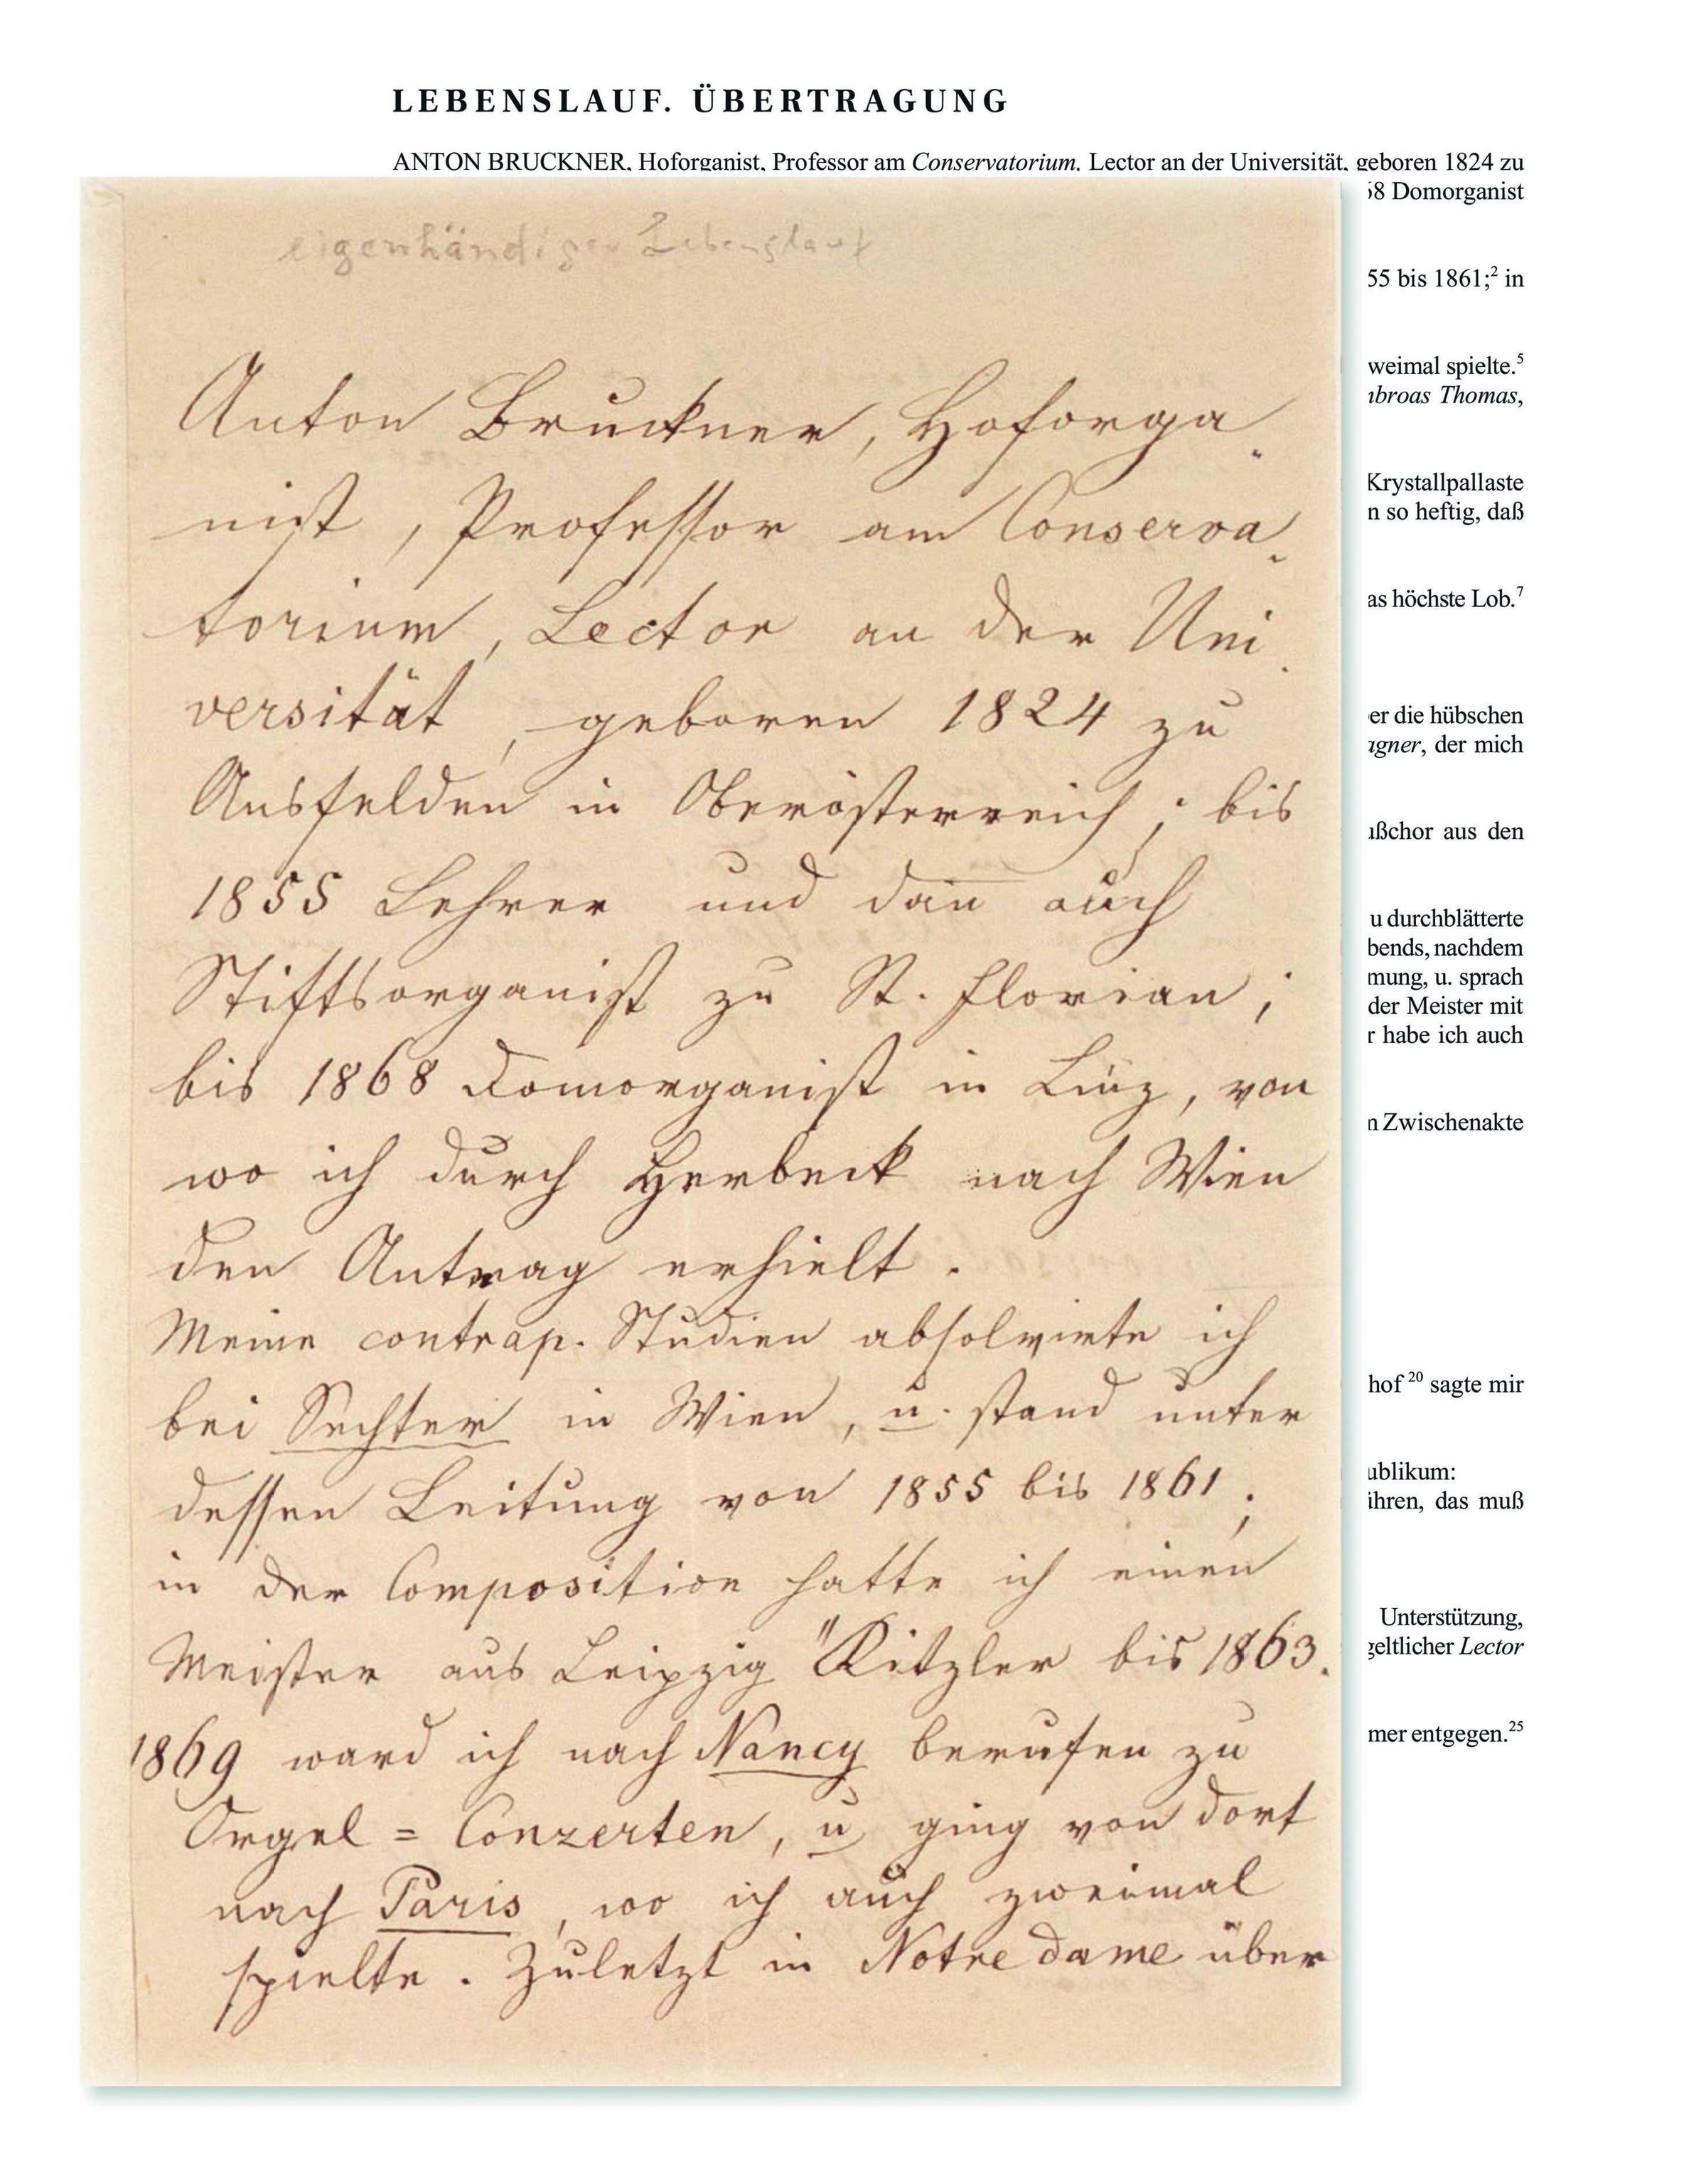 LEBENSLAUF. ÜBERTRAGUNG
ANTON BRUCKNER, Hoforganist, Professor am Conservatorium, Lector an der Universität, geboren 1824 zu
58 Domorganist
55 bis 1861;² in
weimal spielte.⁵
nbroas Thomas,
Krystallpallaste
n so heftig, daß
as höchste Lob.⁷
er die hübschen
agner, der mich
ußchor aus den
u durchblätterte
bends, nachdem
mung, u. sprach
der Meister mit
r habe ich auch
n Zwischenakte
hof ²⁰ sagte mir
ublikum:
ihren, das muß
Unterstützung,
geltlicher Lector
mer entgegen.²⁵
eigenhändiger Lebenslauf
Anton Bruckner, Hoforga
nist, Professor am Conserva
torium, Lector an der Uni
versität, geboren 1824 zu
Ansfelden in Oberösterreich; bis
1855 Lehrer und dan̅ auch
Stiftsorganist zu St. Florian;
bis 1868 Domorganist in Linz, von
wo ich durch Herbeck nach Wien
den Antrag erhielt.
Meine contrap. Studien absolvirte ich
bei Sechter in Wien, u. stand unter
dessen Leitung von 1855 bis 1861;
in der Composition hatte ich einen
Meister aus Leipzig "Kitzler bis 1863.
1869 ward ich nach Nancy berufen zu
Orgel = Conzerten, u ging von dort
nach Paris, wo ich auch zweimal
spielte. Zuletzt in Notre dame über